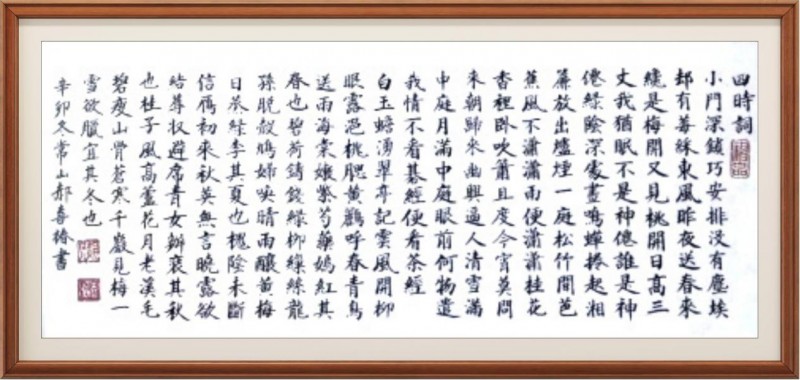 四時詞
小門深鎖巧安排沒有塵埃
却有莓東風昨夜送春來
纔是梅開又見桃開日高三
丈我猶眠不是神僊誰是神
僊綠陰深處晝鳴蟬捲起湘
簾放出爐煙一庭松竹間芭
蕉風不瀟瀟雨便瀟瀟桂花
香裡臥吹簫且度今宵莫問
來朝歸來幽興逼人清雪滿
中庭月滿中庭眼前何物遣
我情不看棊經便看茶經
白玉蟾湧翠亭記雲風開柳
眼露浥桃腮黃鸝呼春青鳥
送雨海棠嫩紫芍藥嫣紅其
春也碧荷鑄錢綠柳繅絲龍
孫脫殼鳩婦喚晴雨釀黃梅
日蒸綠李其夏也槐陰未斷
信雁初來秋英無言曉露欲
結蓐收避席青女辦裝其秋
也桂子風高蘆花月老溪毛
碧瘦山骨蒼寒千巖見梅一
雪欲臘宜其冬也
辛卯冬常山郝喜椿書